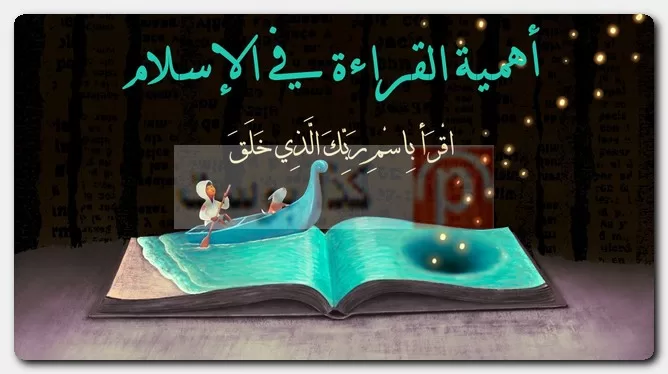 أهمية القراءة في الإسلام
اقْرَأْ بِاسْمِ رَبِّكَ الَّذِي خَلَقَ